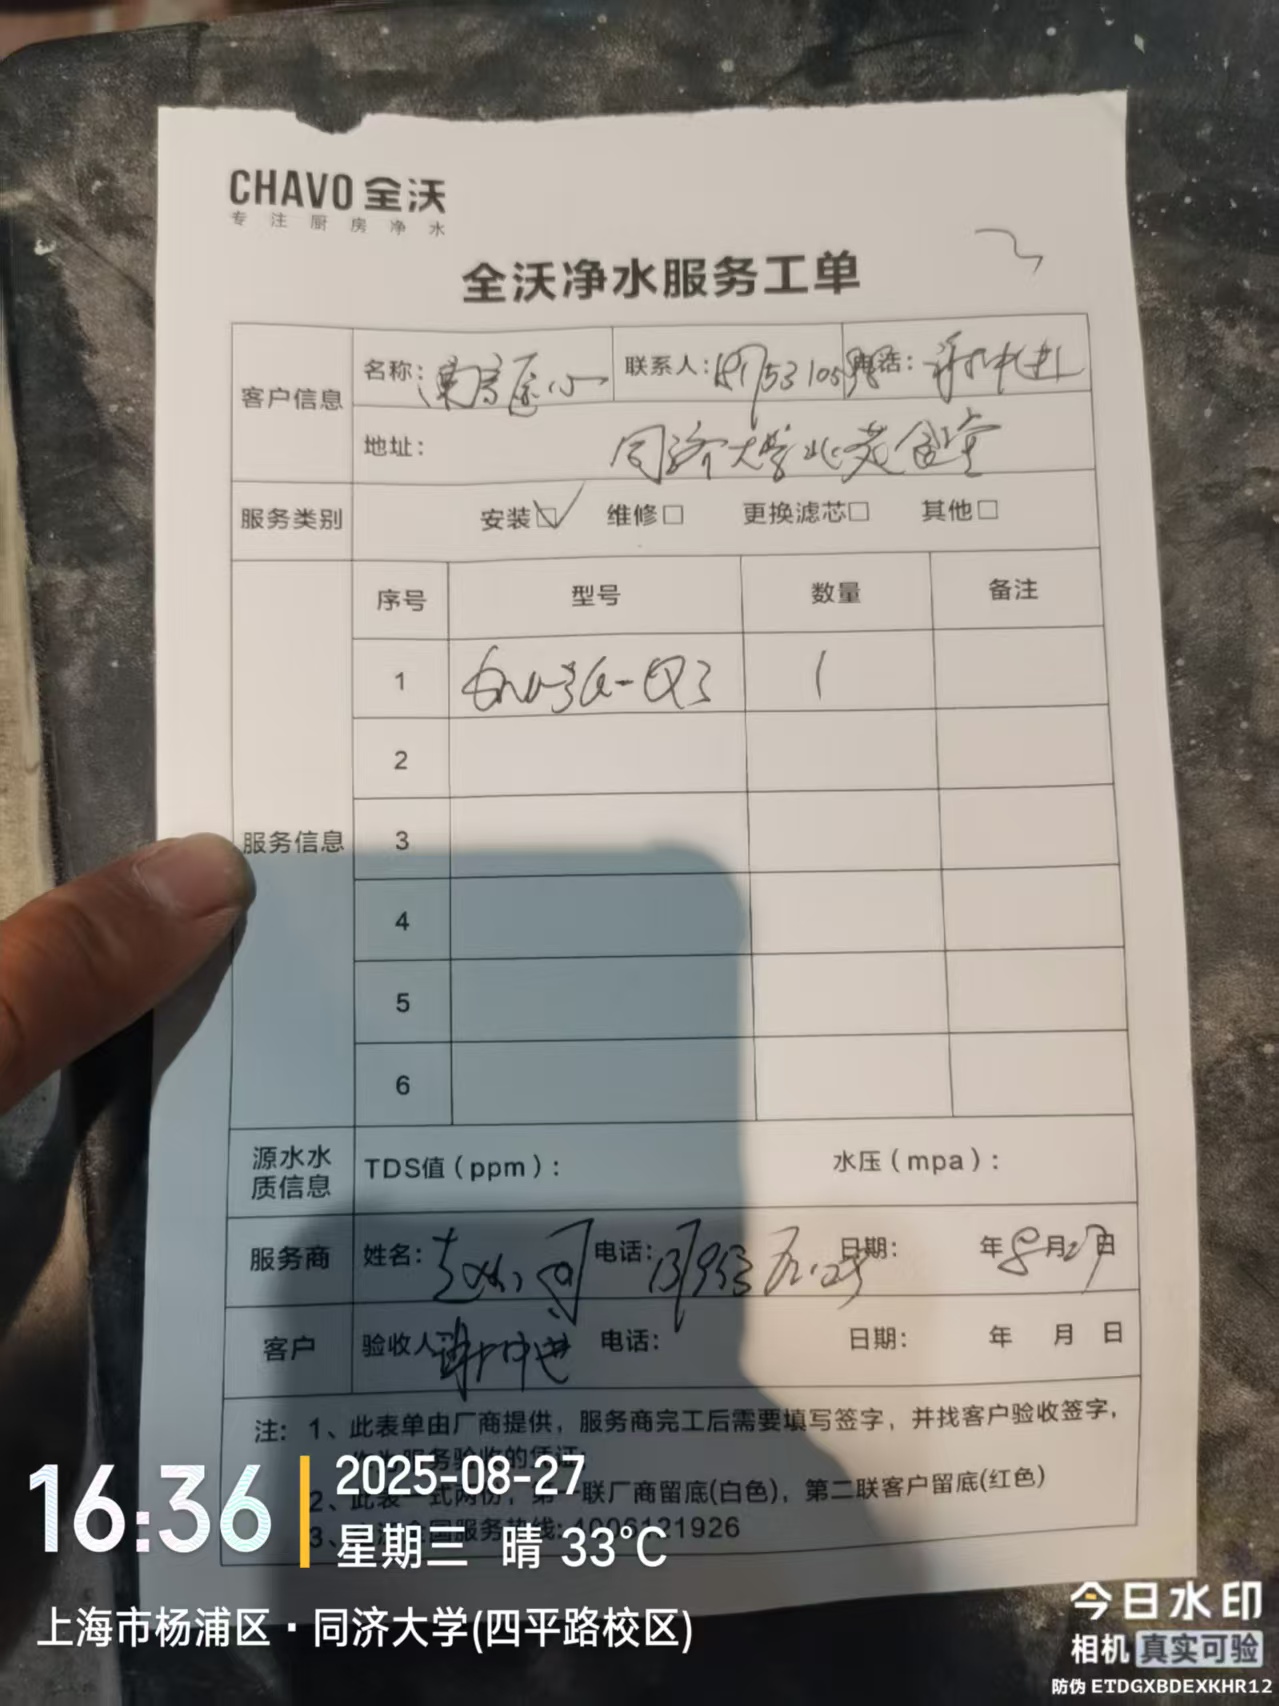 CHAVO 全沃
专注厨房净水
全沃净水服务工单
客户信息
名称:
联系人:
电话:
地址: 同济大学北苑食堂
服务类别 安装☑ 维修□ 更换滤芯□ 其他□
服务信息
序号 型号 数量 备注
1 1
2
3
4
5
6
源水水质信息 TDS值(ppm): 水压(mpa):
服务商 姓名: 电话: 日期: 年8月27日
客户 验收人 电话: 日期: 年 月 日
注: 1、此表单由厂商提供，服务商完工后需要填写签字，并找客户验收签字，
作为服务验收的凭证;
2、此表一式两份，第一联厂商留底(白色)，第二联客户留底(红色)
3、全沃全国服务热线: 4006121926
16:36
2025-08-27
星期三 晴 33°C
上海市杨浦区·同济大学(四平路校区)
今日水印
相机 真实可验
防伪 ETDGXBDEXKHR12